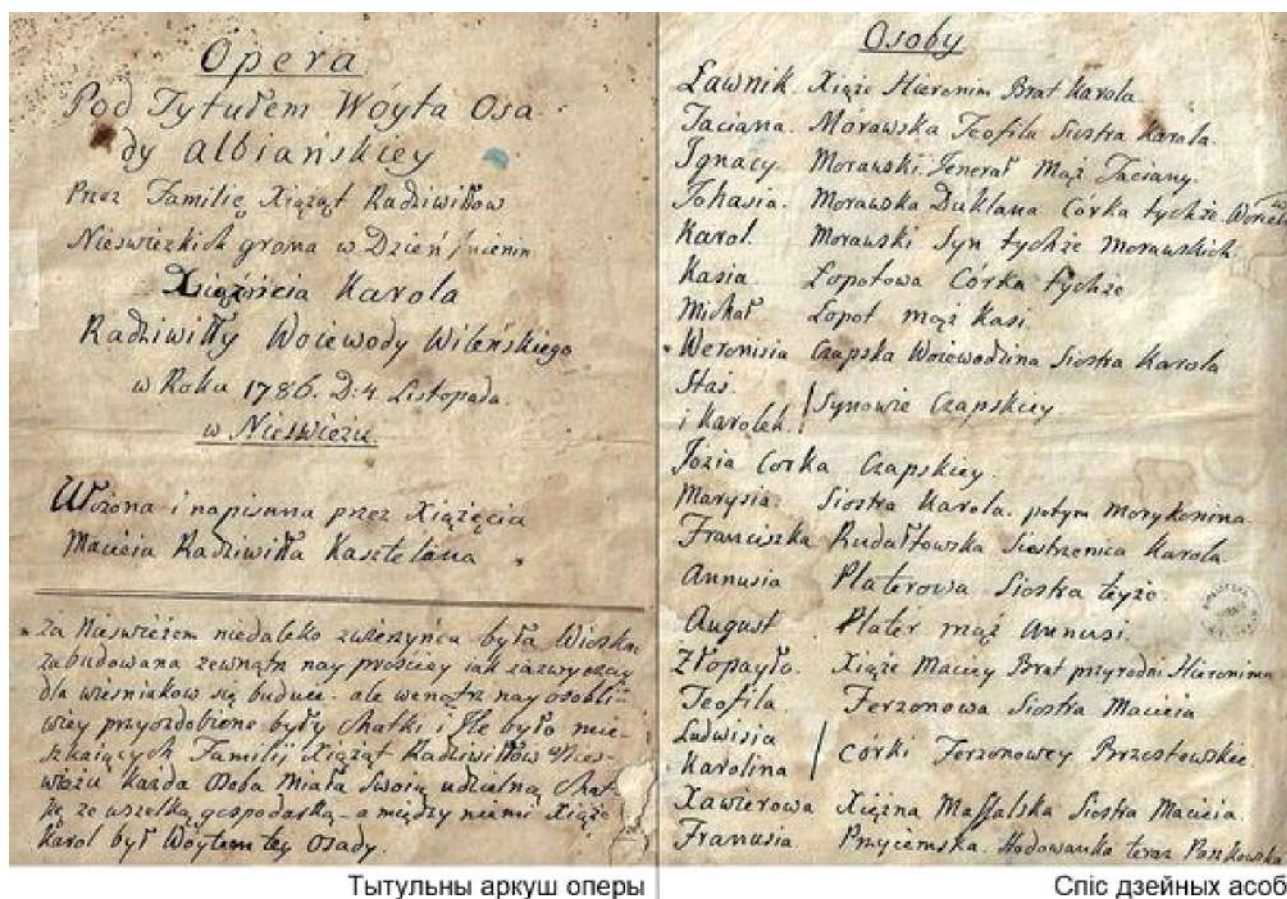 Opera
Pod Tytułem Wóyta Osa
dy Albiańskiey
Przez Familię Xiążąt Radziwiłłow
Nieswiezkich grona w Dzień Jmienin
Xiążęcia Karola
Radziwiłły Woiewody Wileńskiego
w Roku 1786. D: 4. Listopada.
w Nieswiezu.
Ułozona i napisana przez Xiążęcia
Macieia Radziwiłła Kasztelana
Za Nieswieżem niedaleko zwierzyńca była Wioska
zabudowana zewnątrz nay prościey iak zazwyczay
dla wieśniakow się buduie - ale wewnątrz nay osobli-
wiey przyozdobione były Chatki i Jle było mie-
szkaiących Familij Xiążąt Radziwiłłow w Nies-
wiżu Każda Osoba Miała Swoią udzielną Chat-
kę ze wszelką gospodarką - a między niemi Xiąże
Karol był Wóytem tey Osady.
Тытульны аркуш оперы
Osoby
Ławnik. Xiąże Hieronim Brat Karola.
Taciana. Morawska Teofila Siostra Karola.
Jgnacy. Morawski Jenerał Mąż Taciany.
Tohasia. Morawska Duklana Córka tychże.
Karol. Morawski Syn tychże Morawskich.
Kasia Łopotowa Córka tychże
Michał Łopot mąż Kasi.
Weronisia Czapska Woiewodzina Siostra Karola
Staś.
i Karolek. Synowie Czapskiey
Józia Corka Czapskiey.
Marysia. Siostra Karola. potym Morykonina.
Franciszka Rudałtowska Siestrzenica Karola
Annusia Platerowa Siostra teyże.
August Plater mąż Annusi.
Złopayło. Xiąże Maciey Brat przyrodni Hieronima
Teofila. Ferzonowa Siostra Macieia
Ludwisia
Karolina córki Ferzonowey Brzestowskie
Xawierowa Xiężna Massalska Siostra Macieia.
Franusia. Przyiemska. Hodowanka teraz Paszkowska
Спіс дзейных асоб